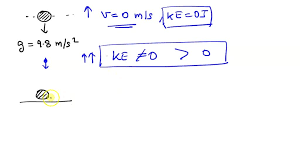 ↑ v=0 m/s, KE=0J
g = 9.8 m/s²
↑↑ KE ≠0 > 0